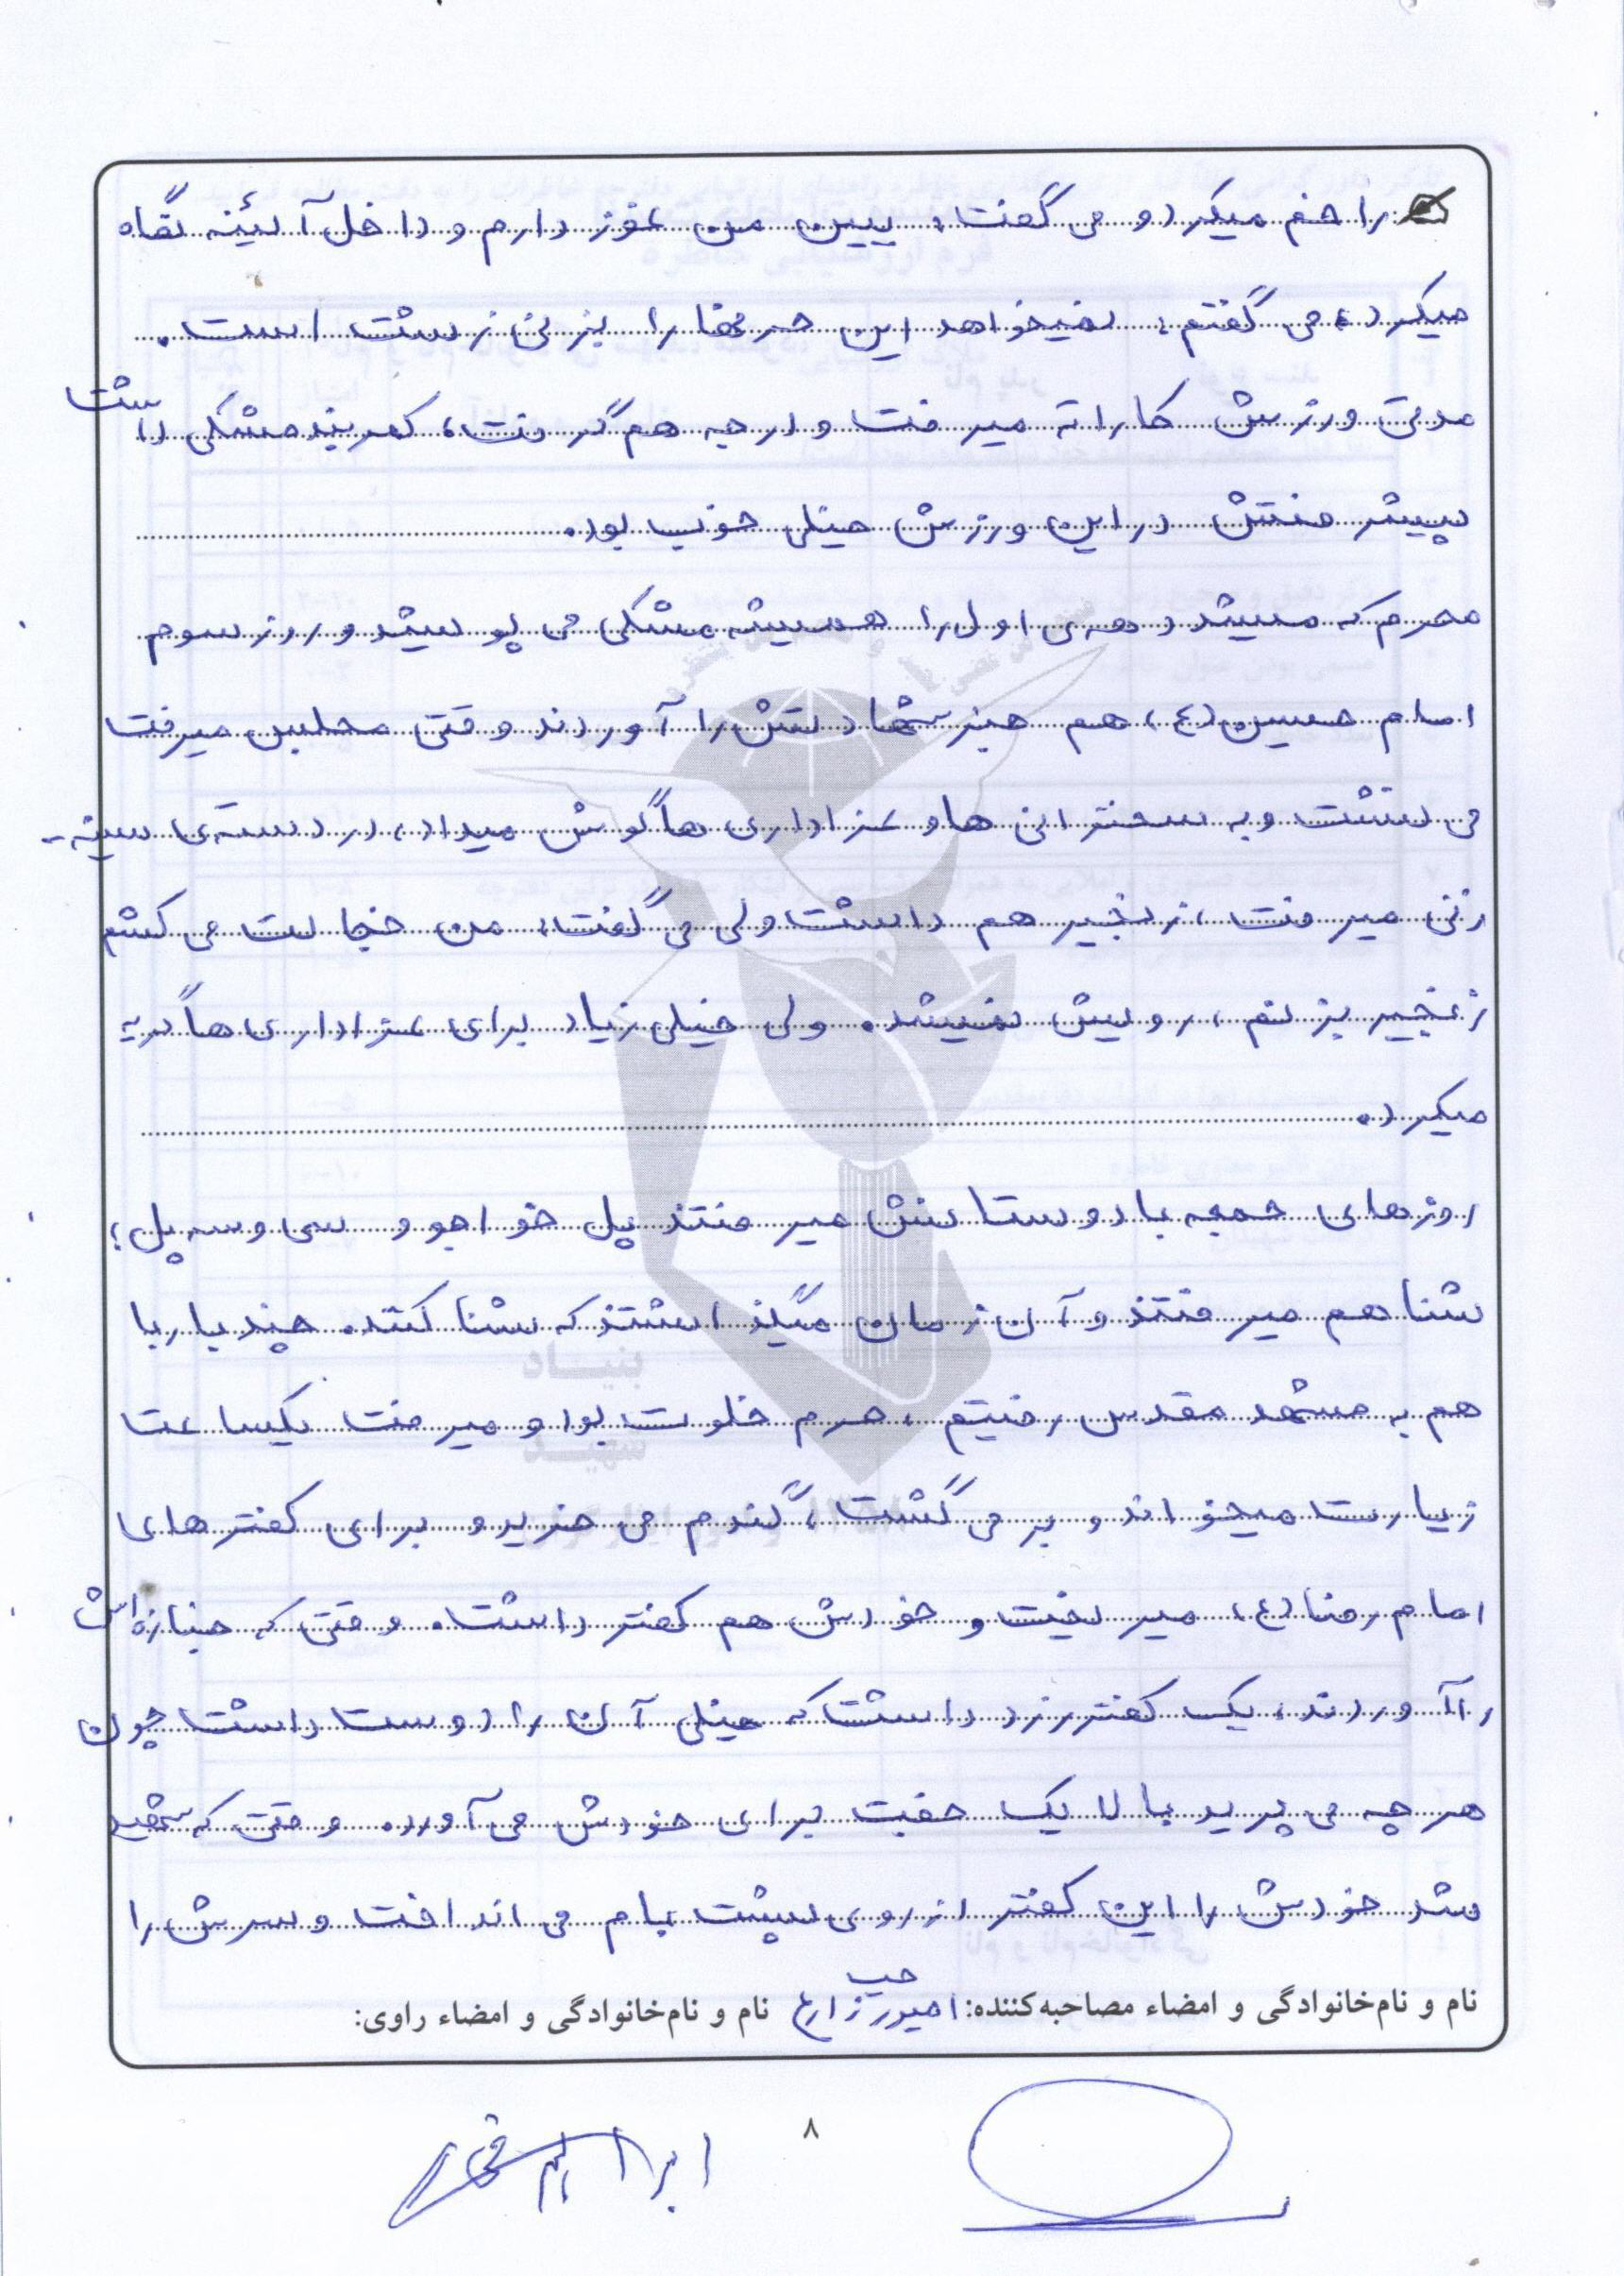 را خم میکرد و می گفت: ببین من غوز دارم و داخل آئینه نگاه
میکرد، می گفتم: نمیخواهد این حرفها را بزنی زشت است.
مدتی ورزش کاراته میرفت و درجه هم گرفت، کمربند مشکی داشت
پیشرفتش در این ورزش خیلی خوب بود.
محرم که میشد دهه‌ی اول را همیشه مشکی می پوشید و روز سوم
امام حسین (ع) هم خبر شهادتش را آوردند وقتی مجلس میرفت
می نشست و به سخنرانی ها و عزاداری ها گوش میداد، در دسته‌ی سینه-
زنی میرفت، زنجیر هم داشت ولی می گفت: من خجالت می کشم
زنجیر بزنم، رویش نمیشد. ولی خیلی زیاد برای عزاداری ها گریه
میکرد.
روزهای جمعه با دوستانش میرفتند پل خواجو و سی و سه پل؛
شنا هم میرفتند و آن زمان میگذاشتند که شنا کنند. چند بار با
هم به مشهد مقدس رفتیم، حرم خلوت بود و میرفت یکساعت
زیارت میخواند و بر می گشت، گندم می خرید و برای کفترهای
امام رضا (ع) میریخت و خودش هم کفتر داشت. وقتی که جنازه اش
را آوردند، یک کفتر زرد داشت که خیلی آن را دوست داشت چون
هر چه می پرید بالا یک جفت برای خودش می آورد. وقتی که شهید
شد خودش را این کفتر از روی پشت بام می انداخت و سرش را
نام و نام‌خانوادگی و امضاء مصاحبه‌کننده: نام و نام‌خانوادگی و امضاء راوی:
۸